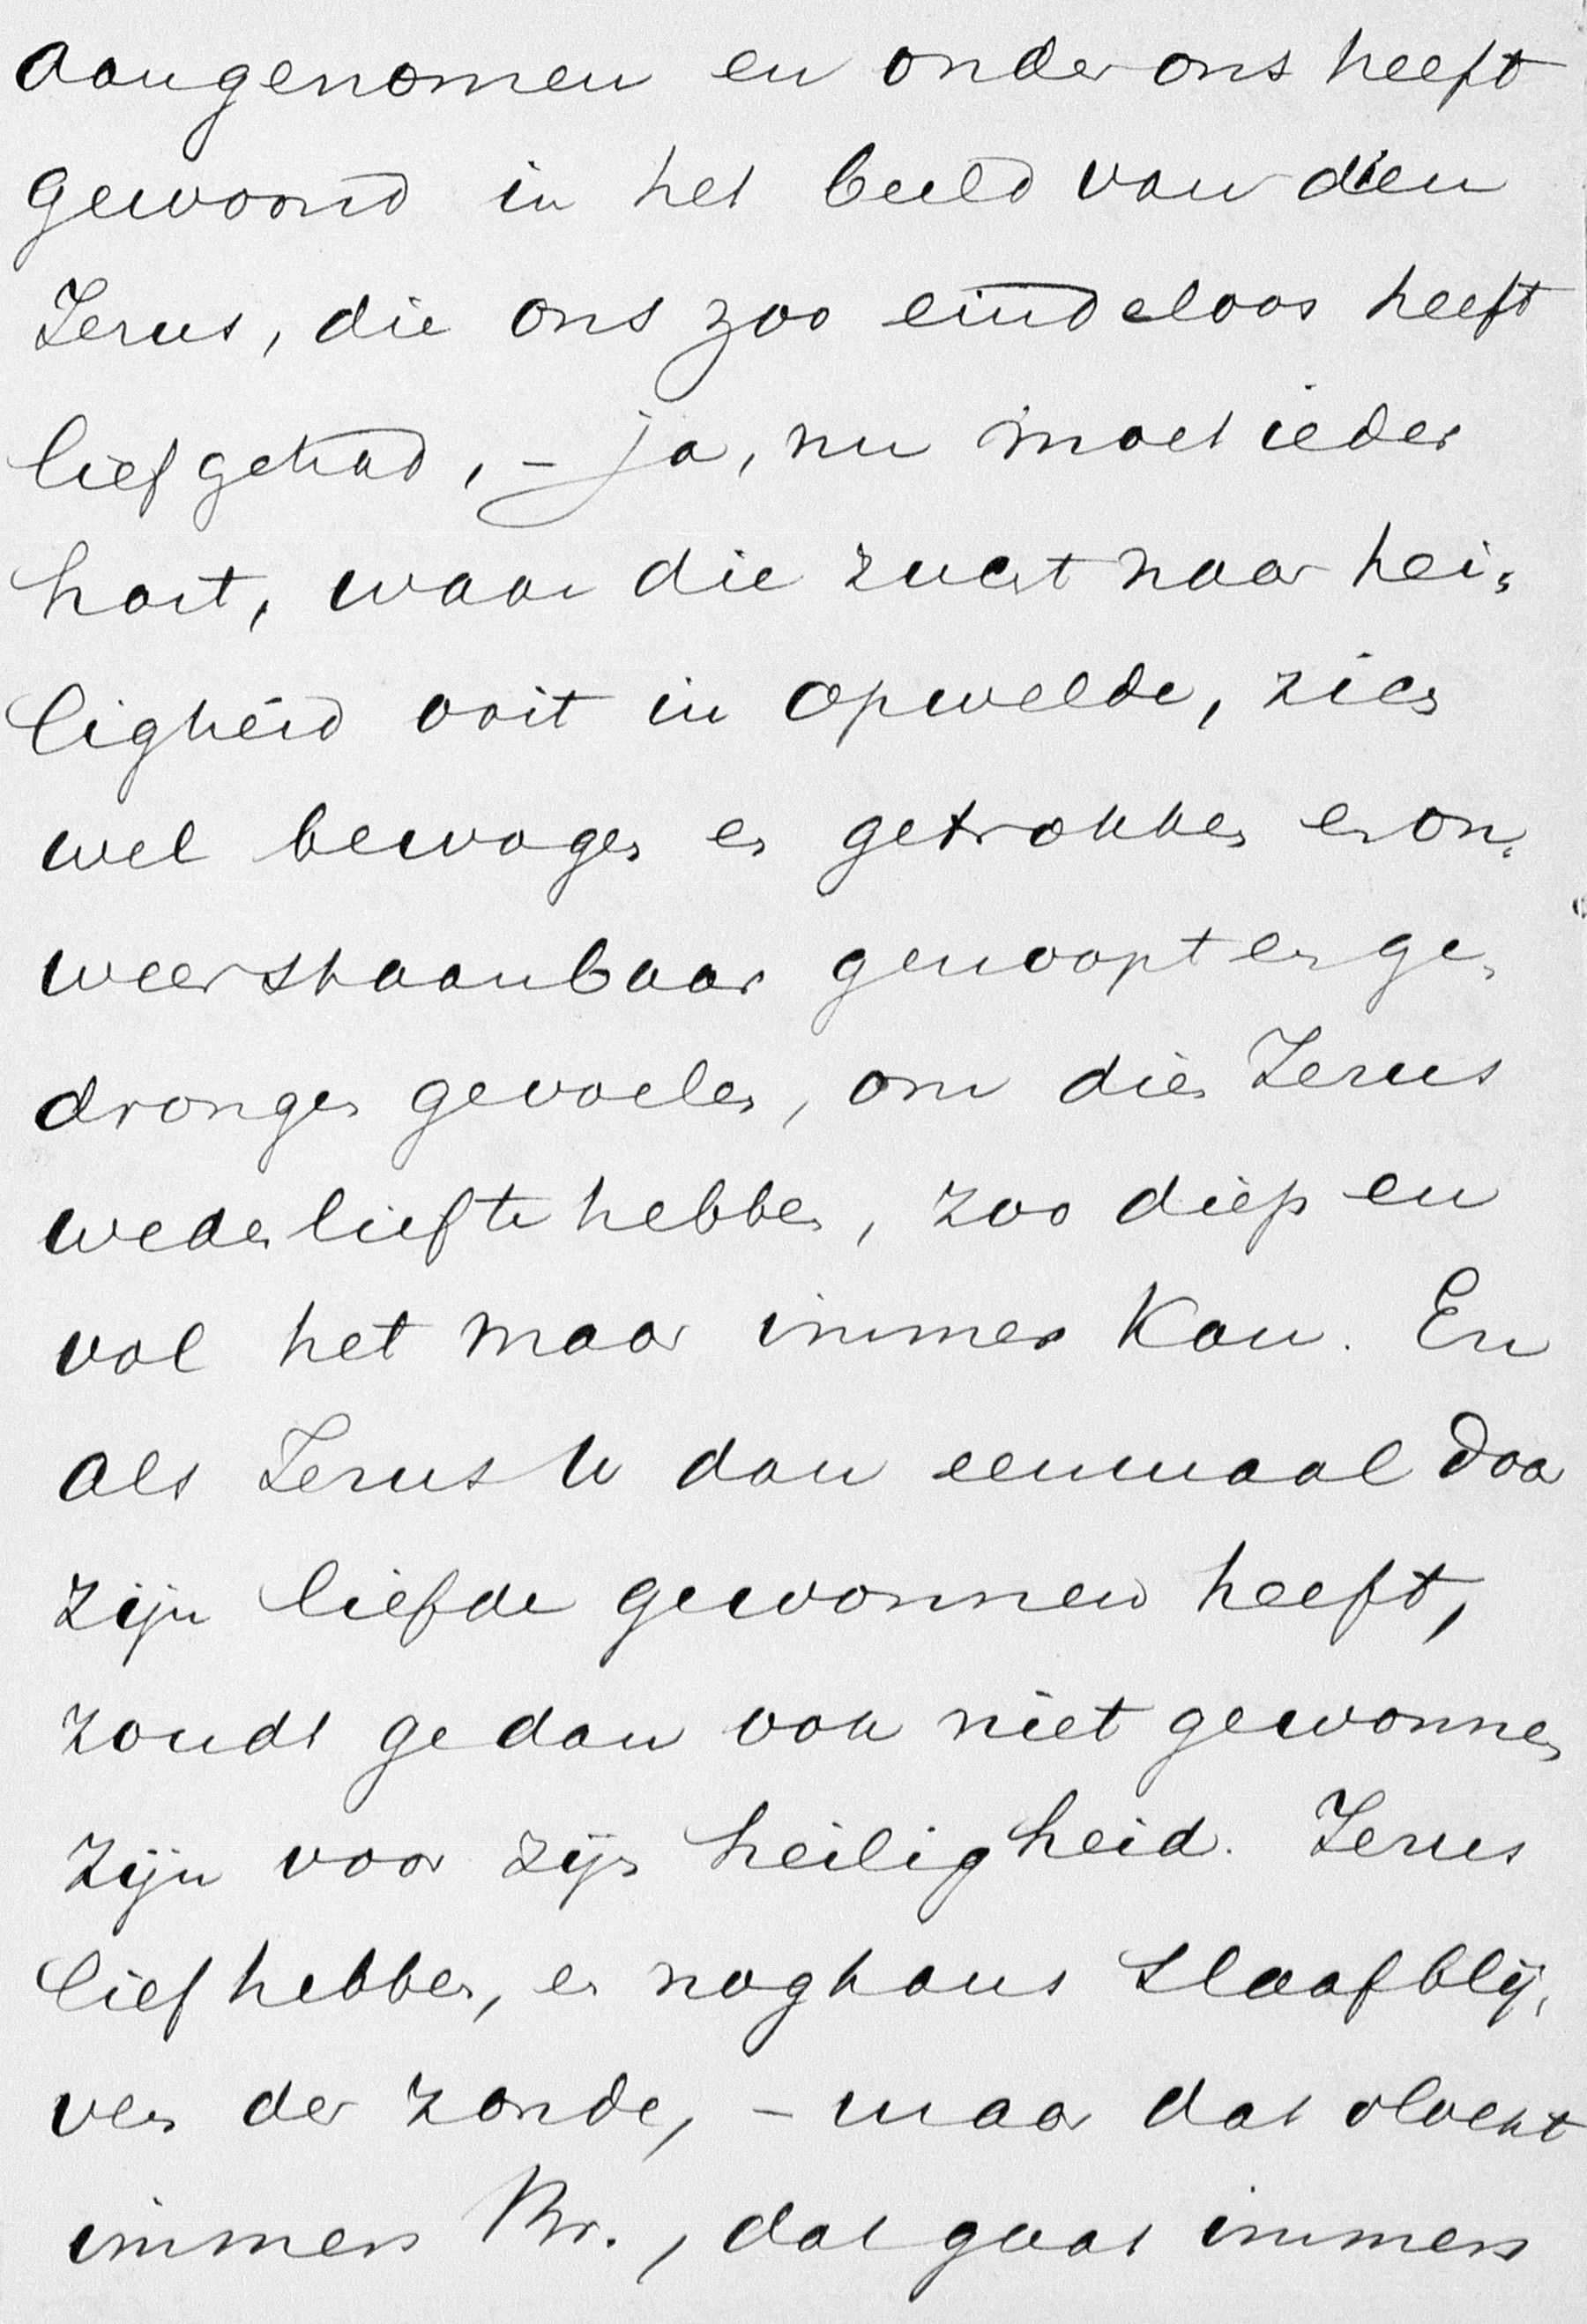 aangenomen en onder ons heeft
gewoond in het beeld van dien
Jezus, die ons zoo eindeloos heeft
lief gehad, - ja, nu moet ieder
hart, waar die zucht naar hei-
ligheid ooit in opwelde, zich
wel bewogen en getrokken en on-
weerstaanbaar genoopt en ge-
drongen gevoelen, om dien Jezus
weder lief te hebben, zoo diep en
vol het maar immer kan. En
als Jezus U dan eenmaal door
zijn liefde gewonnen heeft,
zoudt ge dan ook niet gewonnen
zijn voor zijn heiligheid. Jezus
lief hebben, en nogtans slaaf blij-
ven der zonde, - maar dat vloekt
immers Br., dat gaat immers